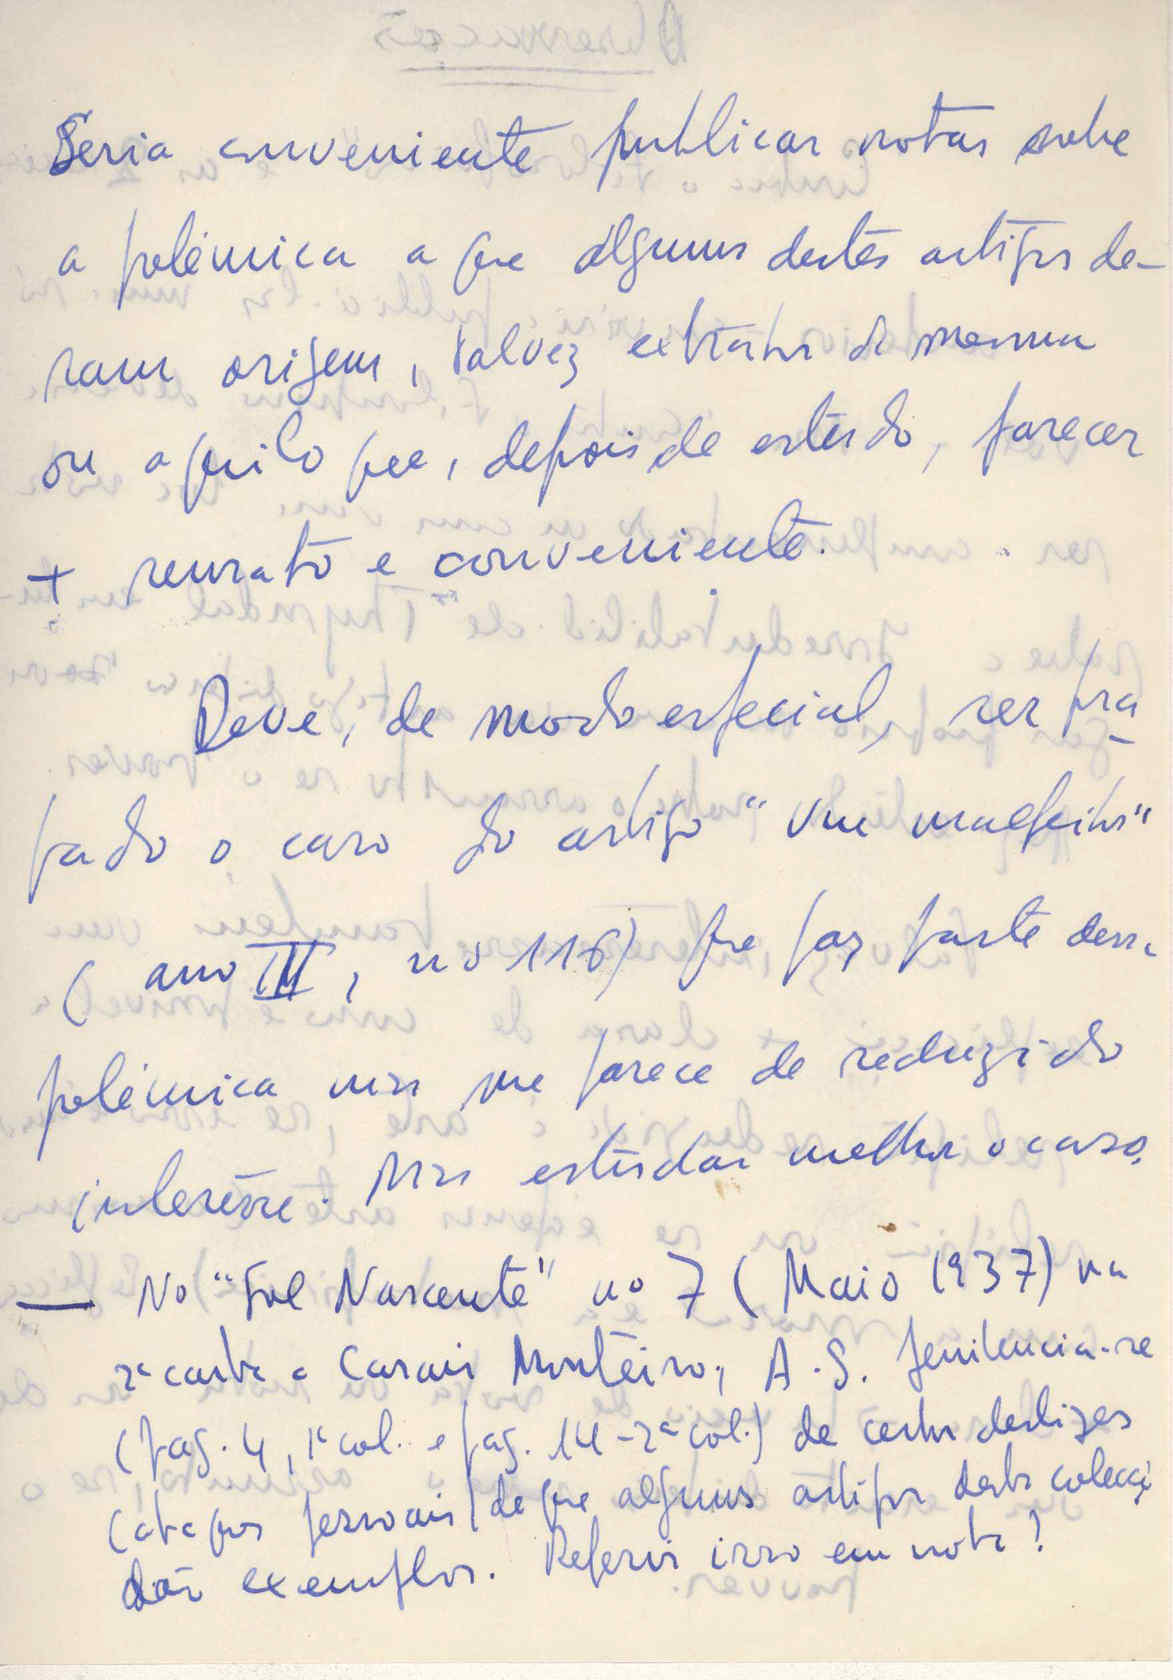 Seria conveniente publicar notas sobre
a polémica a que alguns destes artigos de-
ram origem, talvez extratos da mesma
ou aquilo que, depois de estudo, parecer
+ sensato e conveniente.
Deve, de modo especial, ser pra
o caso do artigo "Um malefício"
(ano III, nº 116) que faz parte dessa
polémica mas me parece de reduzido
interêsse. Mas estudar melhor o caso.
— No "Sol Nascente" nº 7 (Maio 1937) na
2ª carta a Casais Monteiro, A. S. penitencia-se
(pag. 4, 1ª col. e pag. 14 - 2ª col.) de certos deslizes
(ataques pessoais) de que alguns artigos desta colecção
dão exemplos. Referir isso em nota?